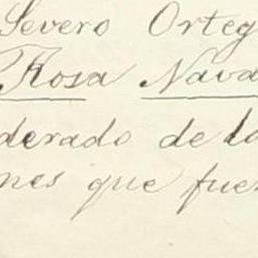 Severo Orteg
Rosa Nava
derado de la
nes que fuer